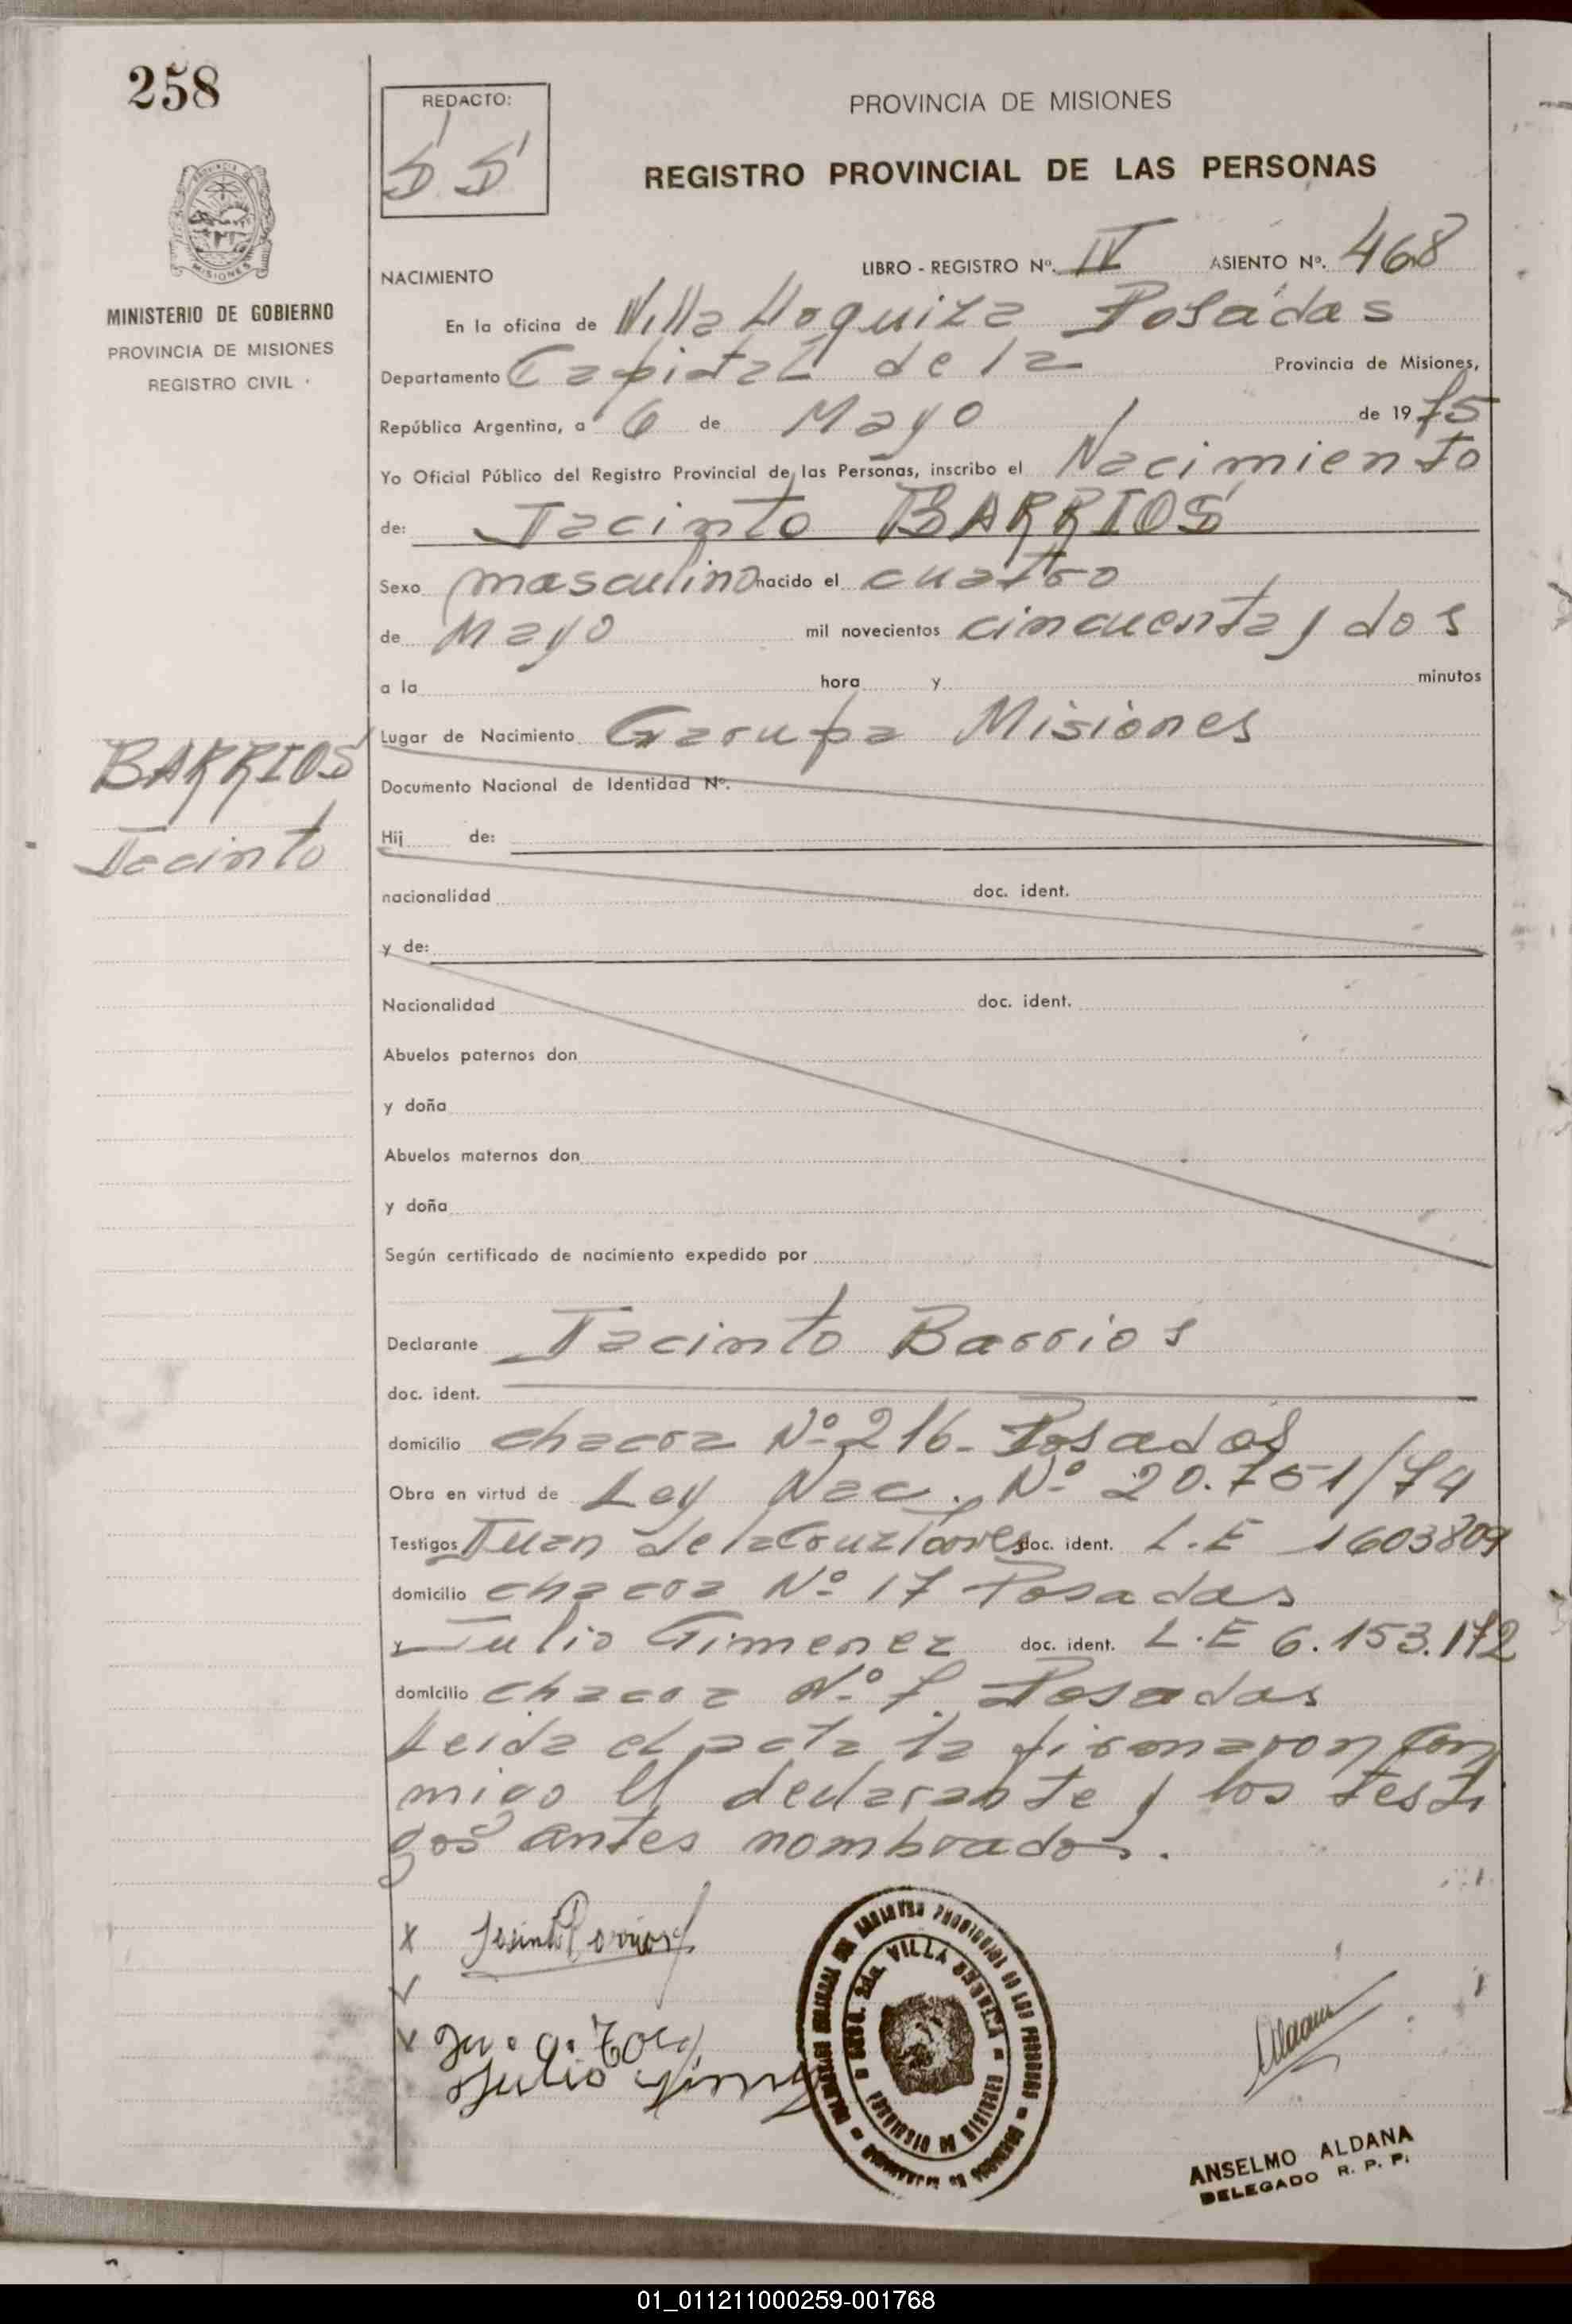 258
REDACTO:
PROVINCIA DE MISIONES
REGISTRO PROVINCIAL DE LAS PERSONAS
MISIONES
MINISTERIO DE GOBIERNO
PROVINCIA DE MISIONES
REGISTRO CIVIL
NACIMIENTO
LIBRO - REGISTRO Nº. IV ASIENTO Nº. 468
En la oficina de Villa Urquiza Posadas
Departamento Capital de la Provincia de Misiones,
República Argentina, a 6 de Mayo de 1975
Yo Oficial Público del Registro Provincial de las Personas, inscribo el Nacimiento
de: Jacinto BARRIOS
Sexo masculino nacido el cuatro
de Mayo mil novecientos cincuenta y dos
a la hora y minutos
Lugar de Nacimiento Garupa Misiones
BARRIOS
Jacinto
Documento Nacional de Identidad Nº.
Hij de:
nacionalidad doc. ident.
y de:
Nacionalidad doc. ident.
Abuelos paternos don
y doña
Abuelos maternos don
y doña
Según certificado de nacimiento expedido por
Declarante Jacinto Barrios
doc. ident.
domicilio chacra Nº 216- Posadas
Obra en virtud de Ley Nac. Nº 20.751/74
Testigos Juan de la Cruz Torres doc. ident. L.E 1603809
domicilio chacra Nº 17 Posadas
y Julio Gimenez doc. ident. L.E 6.153.172
domicilio chacra Nº 7. Posadas
Leida el acta la firmaron con
migo el declarante y los testi
gos antes nombrados.
Jacinto Barrios
Julio
VILLA
ANSELMO ALDANA
DELEGADO R. P. P.
01_011211000259-001768